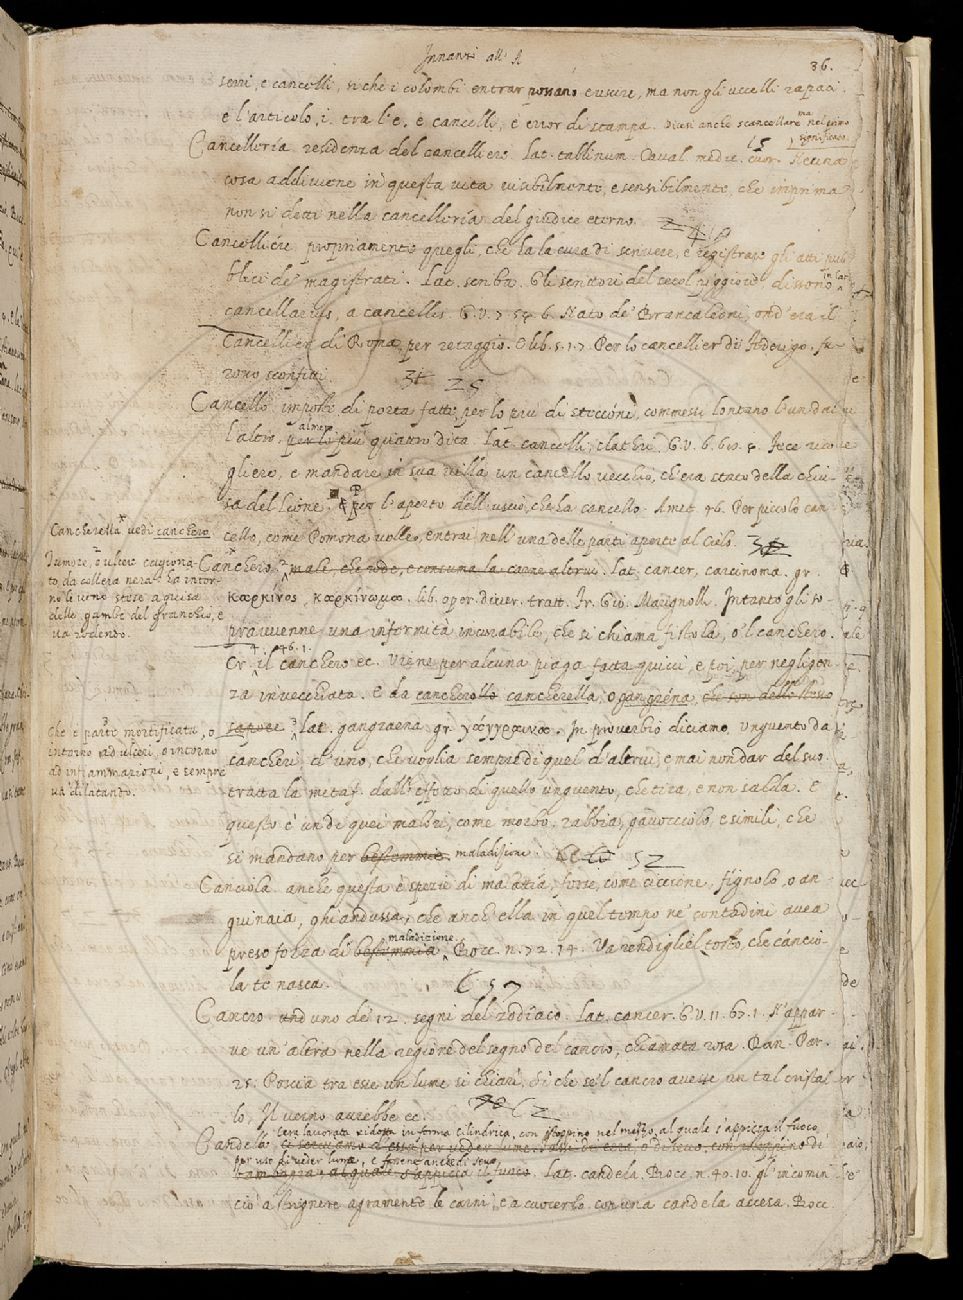 Innanzi all' A
86.
serri, e cancelli, sì che i colombi entrar possano e uscire, ma non gli uccelli rapaci.
e l'articolo, i. tra l'e. e cancelli, è error di stampa. Dicesi anche scancellare ma nel primo significato.
Cancelleria residenza del cancelliero. Lat. tablinum. Caval. medic. cuor. Neuna
cosa addiviene in questa vita visibilmente, e sensibilmente, che imprima
non si detti nella cancelleria del giudice eterno.
Cancelliere propriamente quegli, che ha la cura di scrivere, e registrare gli atti pub
blici de' magistrati. Lat. scriba. Gli scrittori del secol peggiore dissono in lat.
cancellarius, a cancellis. G.V. 7. 54. 6. Nato de' Brancaleoni, ond' era il
Cancellier di Roma per retaggio. E lib. 5. 1. 7. Per lo cancellier di Federigo fu-
rono sconfitti. 25
Cancello imposte di porta fatte per lo più di stecconi, commessi lontano l'un dal-
l'altro, per lo più almeno quattro dita. Lat. cancelli, clathri. G.V. 6. 69. 4. Fece ricoe
gliere, e mandare in sua villa un cancello vecchio, ch'era stato della chiu-
sa del lione. ¶ per l'aperto dell'uscio, che ha cancello. Amet. 46. Per piccolo can
cello, come Pomona volle, entrai nell' una delle parti aperte al cielo.
Cancherella vedi canchero.
Tumore, o ulcere cagiona-
to da collera nera: ha intor-
no le vene stese a guisa
delle gambe del granchio, e
va rodendo.
Canchero male, che rode, e consuma la carne altrui. Lat. cancer, carcinoma. gr.
καρκίνος, καρκίνωμα. lib. oper. diver. tratt. Fr. Gio. Marignoll. Intanto gli so-
pravvenne una infermità incurabile, che si chiama fistola, o'l canchero.
Cr. 4. 46. 1. il canchero ec. viene per alcuna piaga fatta quivi, e poi per negligen-
za invecchiata. E da cancherello cancherella, o gangrena, che son dello stesso
Che è parte mortificata, o
intorno ad ulceri, o intorno
ad infiammazioni, e sempre
va dilatando.
sapore Lat. gangraena gr. γάγγραινα. In proverbio diciamo, Unguento da
cancheri, d'uno, che voglia sempre di quel d'altrui, e mai non dar del suo.
tratta la metaf. dall' effetto di quello unguento, che tira, e non salda. E
questo è un di quei malori, come morbo, rabbia, gavocciolo, e simili, che
si mandano per bestemmie. maladizione 52
Canciola anche questa è spezie di malattia, forse, come ciccione, fignolo, o an-
guinaia, ghiandussa, che anch' ella in quel tempo ne' contadini avea
preso forza di bestemmia maladizione. Bocc. n. 72. 14. Va rendigliel tosto, che cancio-
la te nasca. 57
Cancro und uno de' 12. segni del zodiaco. Lat. cancer. G.V. 11. 67. 1. N'appar-
ve un' altra nella regione del segno del cancro, chiamata rosa. Dan. Par.
25. Poscia tra esse un lume si schiarì, Sì che se'l cancro avesse un tal cristal-
lo, Il verno avrebbe ec.
Candela cera lavorata ridotta in forma cilindrica, con istoppino nel mezzo, al quale s'appicca il fuoco,
per uso di veder lume, e fannene anche di sevo.
bambagia, al quale s'appicca il fuoco. Lat. candela. Bocc. n. 40. 10. gl' incomin-
ciò a strignere agramente le carni, e a cuocerlo con una candela accesa. Bocc.